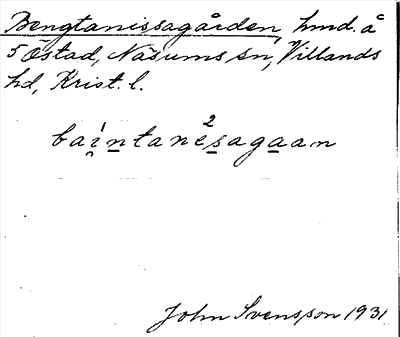 Bengtanissagården, hmd. å
5 Östad, Näsums sn, Villands
hd, Krist. l.
bai̯ntane²sagaan
John Svensson 1931